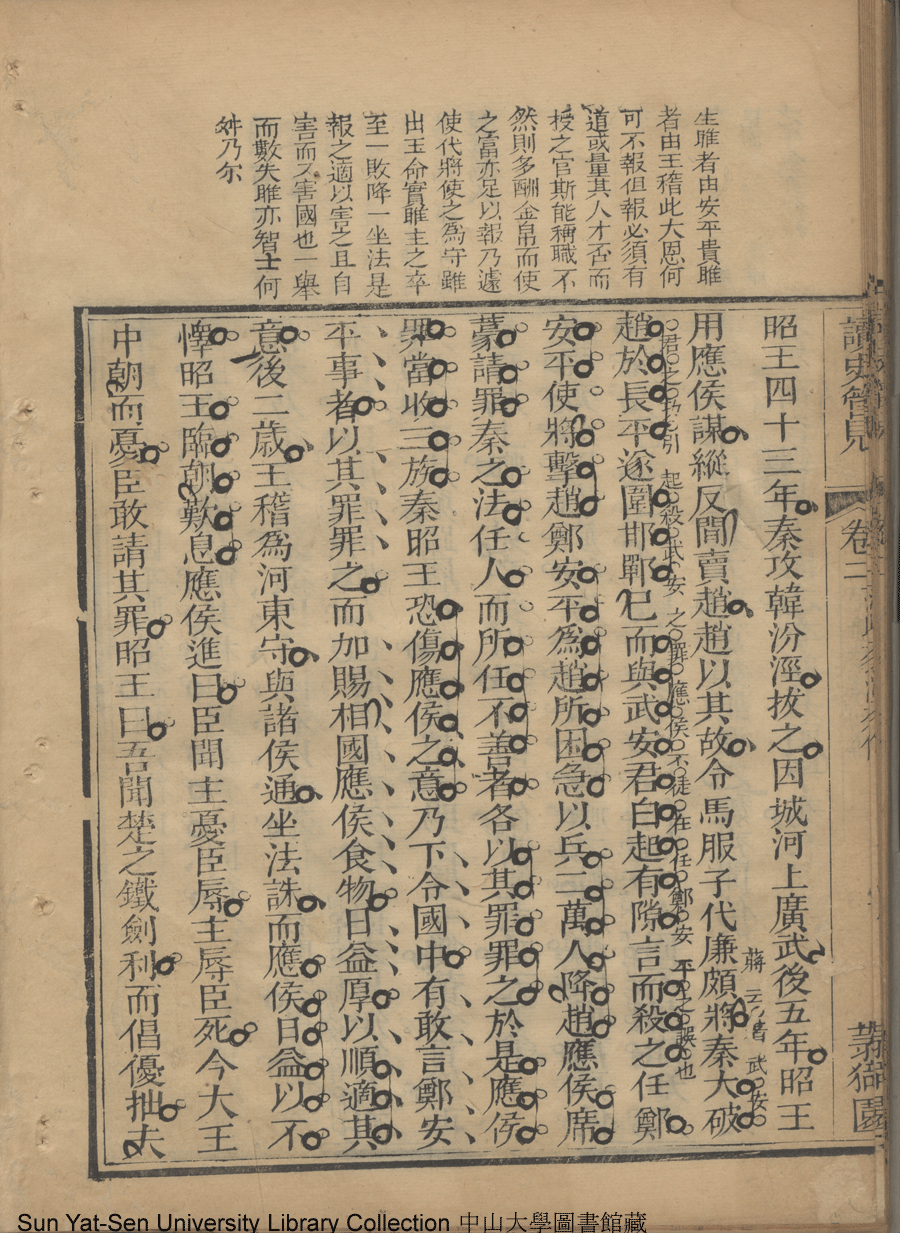 生雎者由安平貴雎
者由王稽此大恩何
可不報但報必須有
道或量其人才否而
授之官斯能稱職不
然則多酬金帛而使
之富亦足以報乃遽
使代將使之為守雖
出王命實雎主之卒
至一敗降一坐法是
報之適以害之且自
害而又害國也一舉
而數失雎亦智士何
舛乃尔
讀史管見
卷二
昭王四十三年秦攻韓汾涇拔之因城河上廣武後五年昭王
用應侯謀縱反閒賣趙趙以其故令馬服子代廉頗將秦大破
蔣云君武安
君之功引起殺武安之罪應侯不徒在任鄭安平之誤也
趙於長平遂圍邯鄲已而與武安君白起有隙言而殺之任鄭
安平使將擊趙鄭安平為趙所困急以兵二萬人降趙應侯席
藁請罪秦之法任人而所任不善者各以其罪罪之於是應侯
罪當收三族秦昭王恐傷應侯之意乃下令國中有敢言鄭安
平事者以其罪罪之而加賜相國應侯食物日益厚以順適其
意後二歲王稽為河東守與諸侯通坐法誅而應侯日益以不
懌昭王臨朝歎息應侯進曰臣聞主憂臣辱主辱臣死今大王
中朝而憂臣敢請其罪昭王曰吾聞楚之鐵劍利而倡優拙夫
Sun Yat-Sen University Library Collection 中山大學圖書館藏